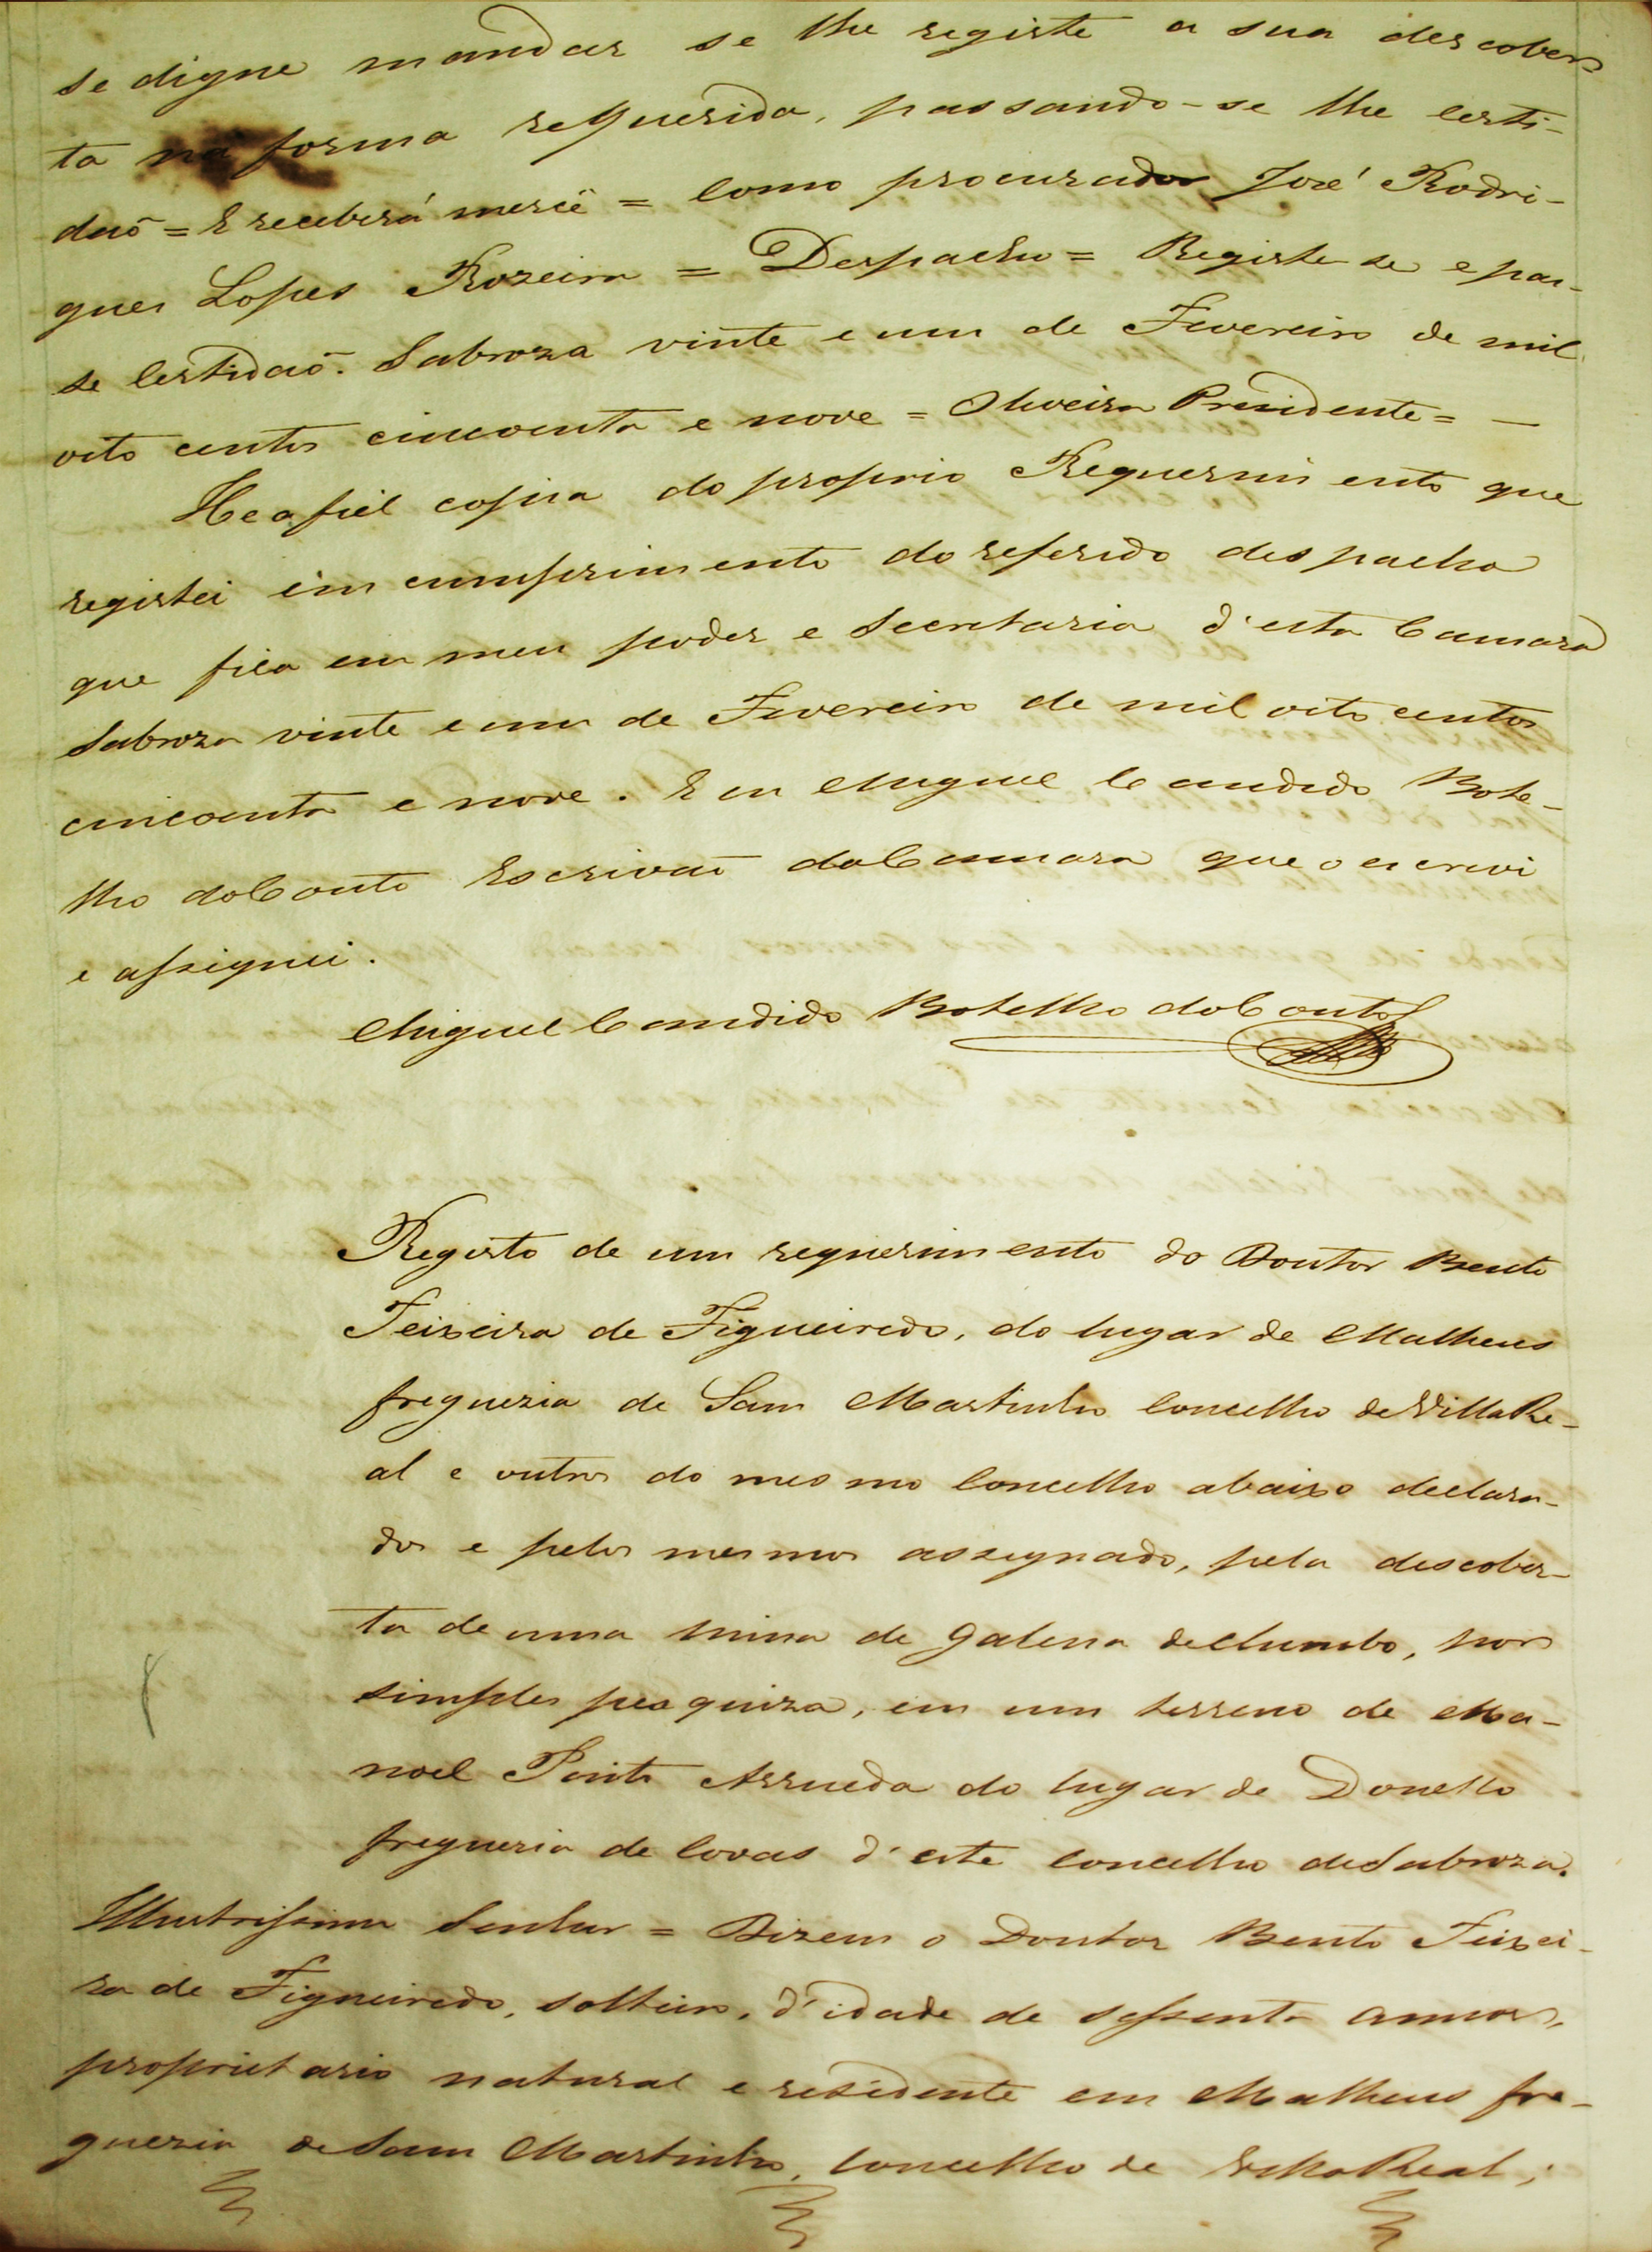 se digne mandar se lhe registe a sua descober-
ta na forma requerida, passando-se lhe certi-
daõ = E receberá mercê = Como procurador José Rodri-
gues Lopes Rozeira = Despacho = Registe se e pas-
se Certidaõ. Sabroza vinte e um de Fevereiro de mil
oito centos cincoenta e nove = Oliveira Presidente = —
He a fiel copia do proprio Requerimento que
registei em cumprimento do referido despacho
que fica em meu poder e Secretaria d'esta Camara
Sabroza vinte e um de Fevereiro de mil oito centos
cincoenta e nove. E eu Miguel Candido Bote-
lho do Couto Escrivaõ da Camara que o escrevi
e assignei.
Miguel Candido Botelho do Couto
Registo de um requerimento do Doutor Bento
Teixeira de Figueiredo, do lugar de Matheus
freguezia de Sam Martinho Concelho de Villa Re-
al e outros do mesmo Concelho abaixo declara-
dos e pelos mesmos assignado, pela descober-
ta de uma mina de galena de chumbo, por
simples pesquiza, em um terreno de Ma-
noel Pinto Arrueda do lugar de Donello
freguezia de Covas d'este concelho de Sabroza.
Illustrissimo Senhor = Dizem o Doutor Bento Teixei-
ra de Figueiredo, solteiro, d'idade de sessenta annos,
proprietario natural e residente em Matheus fre-
guezia de Sam Martinho, Concelho de Villa Real;